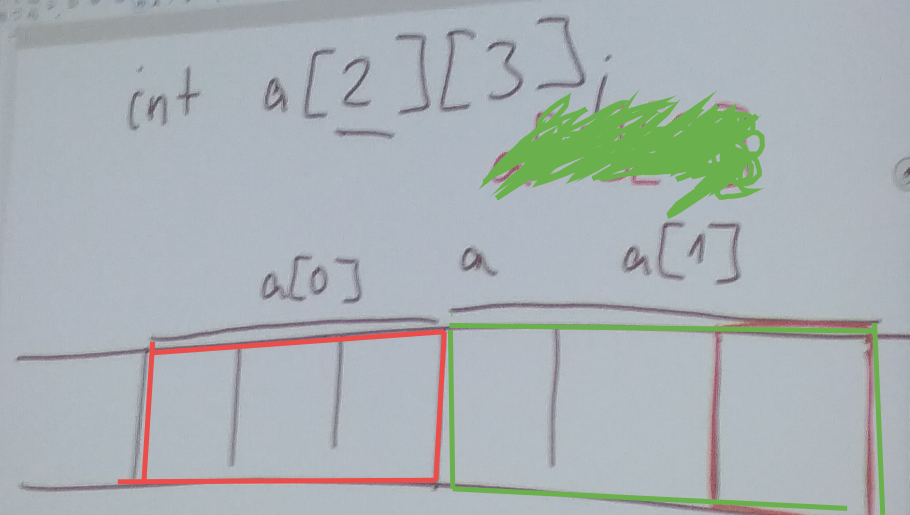 int a[2][3];
a[0] a a[1]